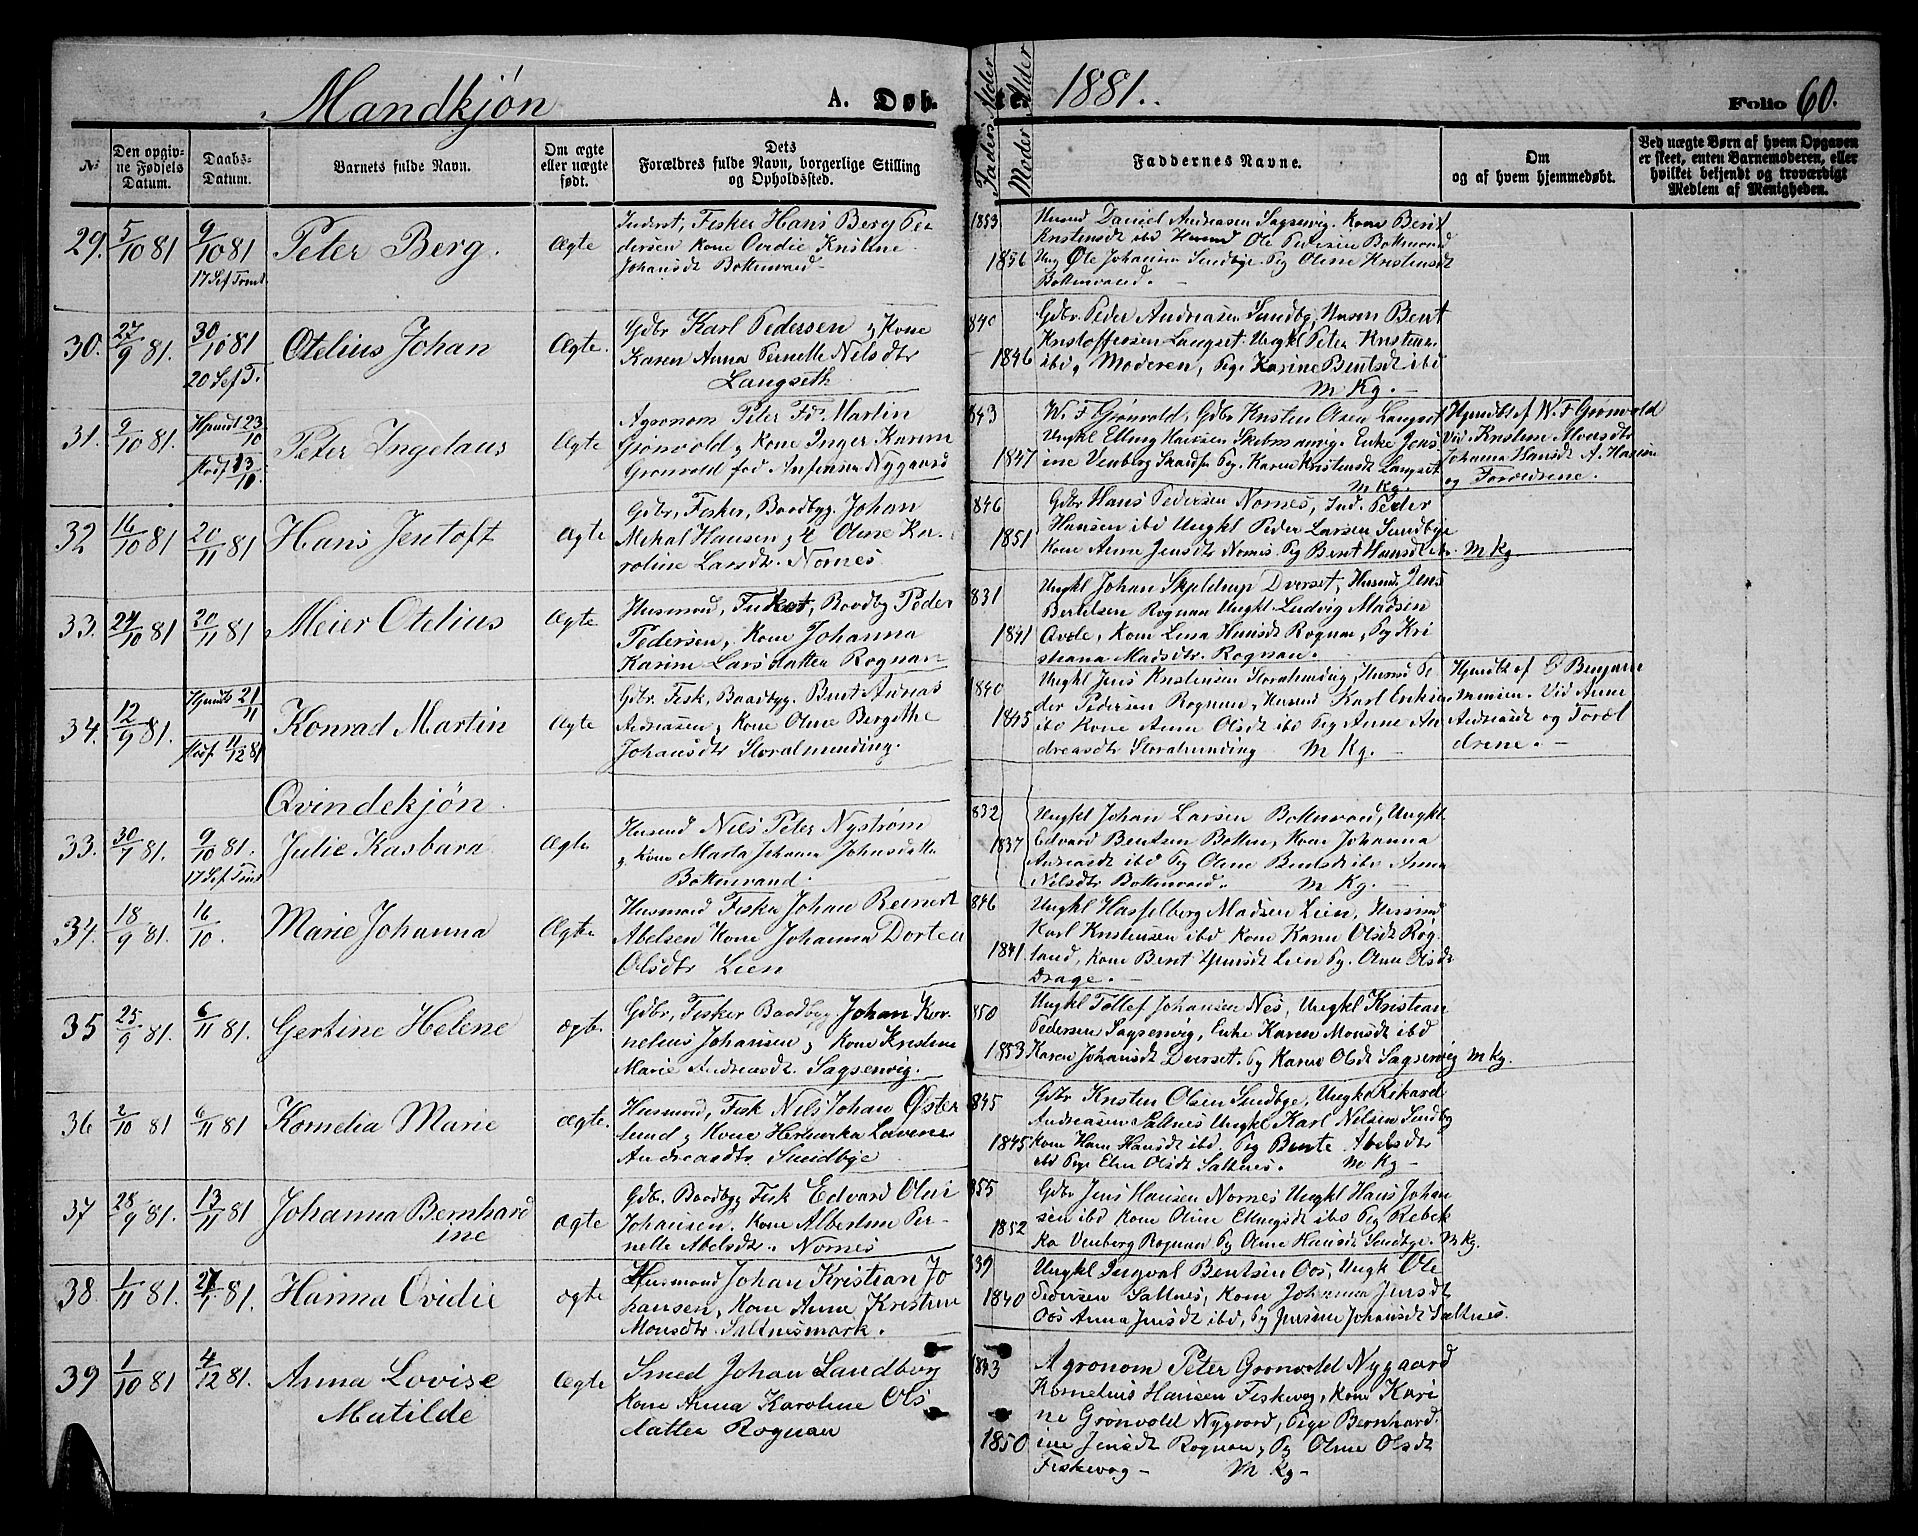 Mandkjøn A. Døbte. 1881. Folio 60.
№
Den opgivne Fødsels Datum.
Daabs-Datum.
Barnets fulde Navn.
Om ægte eller uægte født.
Dets Forældres fulde Navn, borgerlige Stilling og Opholdssted.
Faders Alder
Moder Alder
Faddernes Navne.
Om og af hvem hjemmedøbt.
Ved uægte Børn af hvem Opgaven er skeet, enten Barnemoderen, eller hvilket bekjendt og troværdigt Medlem af Menigheden.
29. 5/10 81 9/10 81 Peter Berg. Ægte
17 Sef Trnt.
Inderst, Fisker Hans Berg Pe
dersen Kone Ovidie Kristine
Johansdt Bottenvand
1853
1856
Husmd Daniel Andreasen Sagsenvig. Kone Berit
Kristensdt ibd Husmd Ole Pedersen Bottenvand
Ung Ole Johansen Sundbye. Pig Oline Kristensdt
Bottenvand.
30. 27/9 81. 30/10 81 Otelius Johan Ægte.
20 Sef T.
Gdbr Karl Pedersen & Kone
Karen Anna Pernille Nilsdtr
Langseth
1840
1846
Gdbr. Peder Andreasen Sundby, Husm Bent
Kristoffersen Langset. Ungkl Peter Kristians.
ibd & Moderen, Pige Karine Bentsdt ibd
M Kg.
31. 9/10 81. Hjmdt 23/10 Peter Ingelaus Ægte
Stadf 13/10
Agronom Peter Fr. Martin
Grønvold & Kone Inger Karine
Grønvold fød Anfensen Nygaard
1843
1847
W. F Grønvold, Gdbr Kristen Olsen Langset
Ungkl Elling Hansen Skatmannig. Enke Jens
ine Venberg Skandfr Pg. Karen Kristensdt Langset
M Kg.
Hjmdt af W. F Grønvold
Vid. Kristine Monsdtr
Johanna Hansdt A. Hansen
og Forældrene.
32 16/10 81 20/11 81 Hans Jentoft Ægte
Gdbr, Fisker, Baadbyg. Johan
Mikal Hansen & K Oline Ka
roline Larsdtr. Nornes
1846
1851
Gdbr Hans Pedersen Nornes, Ind. Peder
Hansen ibd Ungkl Peder Larsen Sundbye
Kone Anne Jensdtr Nornes Pig Berit Hansdt ibd. M Kg
33. 24/10 81 20/11 81 Meier Otelius Ægte
Husmand, Fisker, Baadby Peder
Pedersen, Kone Johanna
Karine Larsdatter Rognan
1831
1841
Ungkl Johan Skjelstrup Dverset, Husmd Jens
Bertelsen Rognan Ungkl Ludvig Madsen
Avde, Kone Lina Hansdt Rognan, Pig Kri
stiana Madsdtr. Rognan.
34. 12/9 81. Hjmdt 21/11 Konrad Martin Ægte
Stadf. 11/12 81
Gdbr. Fisk, Baadbyg. Bent Arnas
Andreassen, Kone Oline Bergithe
Johansdtr Storalmunding.
1840
1845
Ungkl Jens Kristensen Storalmunding, Husmd Pe
der Pedersen Rognan, Husmd Karl Eriksen
ibd Kone Anne Olsdt ibd Pig Anne An
dreasdtr Storalmunding M Kg.
Hjmdt af O Benjamin
Monsen. Vid Anne
Andreasdt og Foræl
drene.
Qvindekjøn
33. 30/7 81. 9/10 81. Julie Kasbara Ægte
17 Sef Trnt
Husmd Nils Peter Nystrøm
& Kone Marta Johanna Johnsdatt.
Bottenvand.
1832
1837
Ungkl Johan Larsen Bottenvand, Ungkl
Edvard Bentsen Botten, Kone Johanna
Andreasdt ibd Pig Oline Bentsdt ibd Anna
Nilsdtr Bottenvand. M Kg.
34. 18/9 81. 16/10. Marie Johanna Ægte
Husmand Fisker Johan Reinert
Abelsen Kone Johanna Dortea
Olsdtr Lien
1846
1841
Ungkl Hasselberg Madsen Lien, Husmd
Karl Kristensen ibd Kone Karen Olsdt Rog
land, Kone Berit Hansdt Lien Pg. Oline Olsdt
Drage.
35 25/9 81. 6/11 81. Gertine Helene ægte
Gdbr, Fisker Baadbyg Johan Kor
nelius Johansen, Kone Kristine
Marie Andreasdt. Sagsenvig.
1850
1853
Ungkl Tollef Johansen Nes, Ungkl Kristian
Pedersen Sagsenvig, Enke Karen Monsdt ibd
Karen Johansdt Dverset. Pg Karen Olsdt Sagsenvig M Kg.
36 2/10 81 6/11 81 Kornelia Marie ægte.
Husmand, Fisk Nils Johan Øster
lund & Kone Henrika Lavense
Andreasdtr. Sundbye
1845
1845
Gdbr Kristen Olsen Sundbye, Ungk Rikard
Andreasen Saltnes Ungkl Karl Nilsen Sundby
Kone Hanna Hansdt ibd. Pig Bente Abelsdtr
ibd Pige Elen Olsdt Saltnes. M Kg
37 28/9 81. 13/11 81 Johanna Bernhard
ine ægte
Gdb. Baadbyg Fisk Edvard Olai
Johansen. Kone Albertine Per-
nelle Abelsdtr. Nornes
1855
1852
Gdbr Jens Hansen Nornes Ungkl Hans Johan
sen ibd Kone Oline Ellingsdt ibd Pig Rebek
ka Venberg Rognan Pg Oline Hansdt Sundbye. M Kg.
38. 1/11 81. 27/ 81. Hanna Ovidie ægte
Husmand Johan Kristian Jo
hansen, Kone Anne Kristine
Monsdtr. Saltnesmark.
39
1840
Ungkl Ingval Bentsen Oos, Ungk Ole
Pedersen Saltnes, Kone Johanna Jensdt
Oos Anna Jensdt ibd, Pg Jensine Johansdt Saltnes.
39 1/10 81 4/12 81. Anna Lovise
Matilde Ægte
Smed Johan Sandberg
Kone Anna Karoline Ols
datter Rognan
1843
1850
Agronom Peter Grønvold Nygaard
Kornelius Hansen Fiskevog, Kone Kari
ne Grønvold Nygaard, Pige Bernhard
ine Jensdt Rognan, Pg Oline Olsdt
Fiskevog M Kg